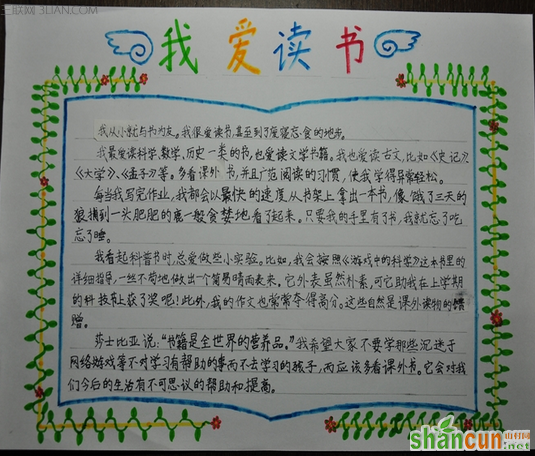 三联网 3LIAN.COM
我爱读书
我从小就与书为友。我很爱读书,甚至到了废寝忘食的地步。
我最爱读科学,数学,历史一类的书,也爱读文学书籍。我也爱读古文,比如《史记》、
《大学》、《孟子》等。多看课外书,并且广范阅读的习惯,使我学得异常轻松。
每当我写完作业,我都会以最快的速度,从书架上拿出一本书,像饿了三天的
狼捕到一头肥肥的鹿一般贪婪地看了起来。只要我的手里有了书,我就忘了吃
忘了睡。
我看起科普书时,总爱做些小实验。比如,我会按照《游戏中的科学》这本书里的
详细指导,一丝不苟地做出一个简易晴雨表来。它外表虽然朴素,可它助我在上学期
的科技节上获了奖呢!此外,我的作文也常常夺得高分。这些自然是课外读物的馈
赠。
莎士比亚说:"书籍是全世界的营养品。"我希望大家不要学那些沉迷于
网络游戏等不对学习有帮助的事而不去学习的孩子,而应该多看课外书。它会对我
们今后的生活有不可思议的帮助和提高。
shancun 山村网
.net